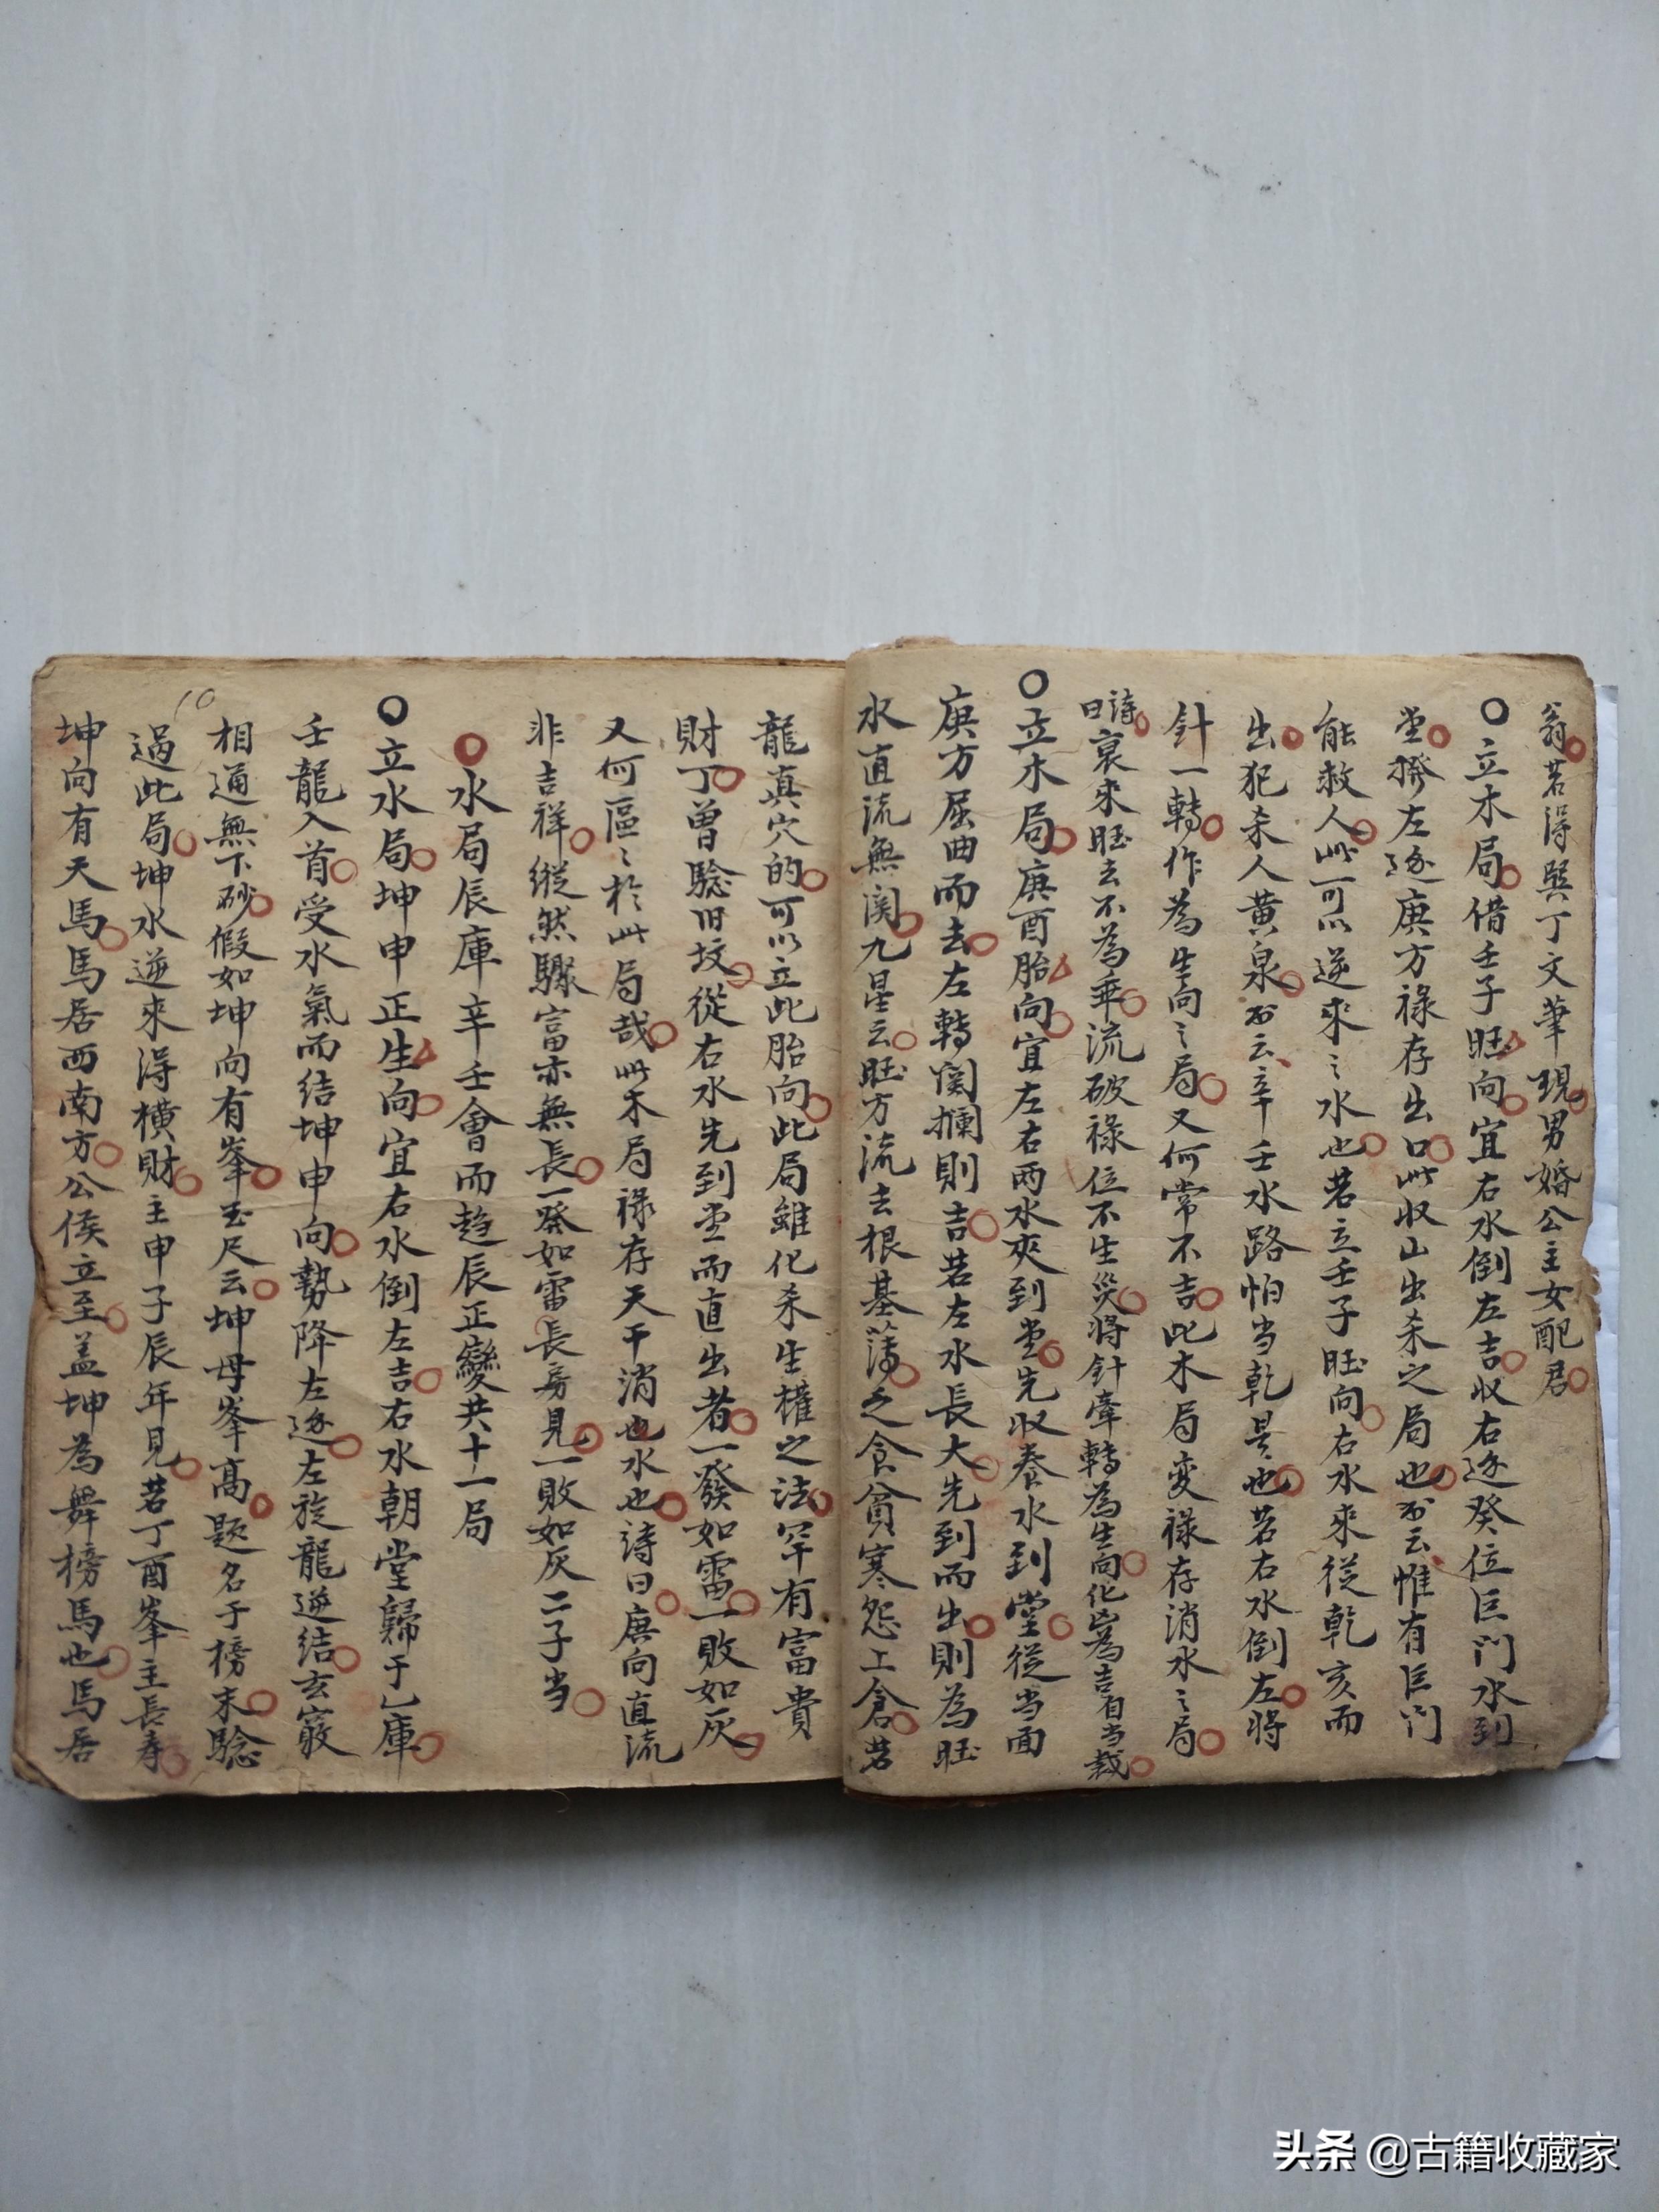 翁若得巽丁文筆現男婚公主女配君
○立木局借壬子旺向宜右水倒左吉收右逐癸位巨门水到
堂撥左逐庚方禄存出口此收山出杀之局也云惟有巨门
能救人此可以逆來之水也若立壬子旺向右水來従乾亥而
出犯杀人黄泉云辛壬水路怕当乾是也若右水倒左将
針一轉作為生向之局又何常不吉此木局变禄存消水之局
詩曰衰來旺去不為乖流破禄位不生災将針牽轉為生向化凶為吉自当裁
○立木局庚酉胎向宜左右两水夾到堂先收養水到堂従当面
庚方屈曲而去左轉関攔則吉若左水長大先到而出則為旺
水直流無関九星云旺方流去根基蕩乏食貧寒怨上倉若
龍真穴的可以立此胎向此局雖化杀生權之法罕有富貴
財丁曽驗旧坟従右水先到堂而直出者一發如雷一敗如灰
又何區之於此局哉此木局禄存天干消也水也詩曰庚向直流
非吉祥縦然驟富亦無長一發如雷長房見一敗如灰二子当
水局辰庫辛壬會而趋辰正變共十一局
○立水局坤申正生向宜右水倒左吉右水朝堂歸于乙庫
壬龍入首受水氣而結坤申向勢降左逐左旋龍逆結玄竅
相通無下砂假如坤向有峯玉尺云坤母峯高題名于榜末驗
過此局坤水逆來得横財主申子辰年見若丁酉峯主長寿
坤向有天馬馬居西南方公侯立至盖坤為舞榜馬也馬居
10
头条 @古籍收藏家